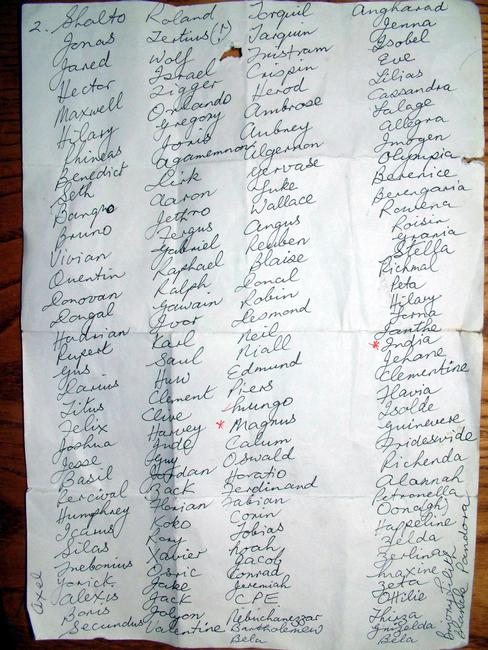 2. Shalto Roland Torquil Angharad
Jonas Tertius(!) Tarquin Jenna
Jared Wolf Tristram Isobel
Hector Israel Crispin Eve
Maxwell Zigger Herod Lilias
Hilary Orlando Ambrose Cassandra
Phineas Gregory Aubrey Lalage
Benedict Joris Algernon Allegra
Seth Agamemnon Gervase Imogen
Banquo Dirk Luke Olympia
Bruno Aaron Wallace Berenice
Vivian Jethro Angus Berengaria
Quentin Fergus Reuben Romena
Donovan Gabriel Blaise Roisin
Dougal Raphael Donal Grania
Hadrian Ralph Robin Stella
Rupert Gawain Desmond Richmal
Gus Ivor Neil Peta
Darius Karl Niall Hilary
Titus Saul Edmund Forna
Felix Huw Piers Ianthe
Joshua Clement Mungo * India
Jesse Clive * Magnus Jehane
Basil Harvey Calum Clementine
Percival Inde Oswald Flavia
Humphrey Guy Horatio Isolde
Icarus Jordan Ferdinand Guinevere
Silas Zack Fabian Frideswide
Trebonius Florian Corin Richenda
Yorick Koko Tobias Alannah
Alexis Rory Noah Petronella
Boris Xavier Jacob Oonagh
Secundus Osric Conrad Happeline
Jake Jeremiah Zelda
Jack CPE Berlinda
Jolyon Nebuchanezzar Maxine
Valentine Bartholemew Zeta
Bela Ottilie
Thirza
Griselda
Bela
Axel
Bryony Lilith
Blanche Pandora